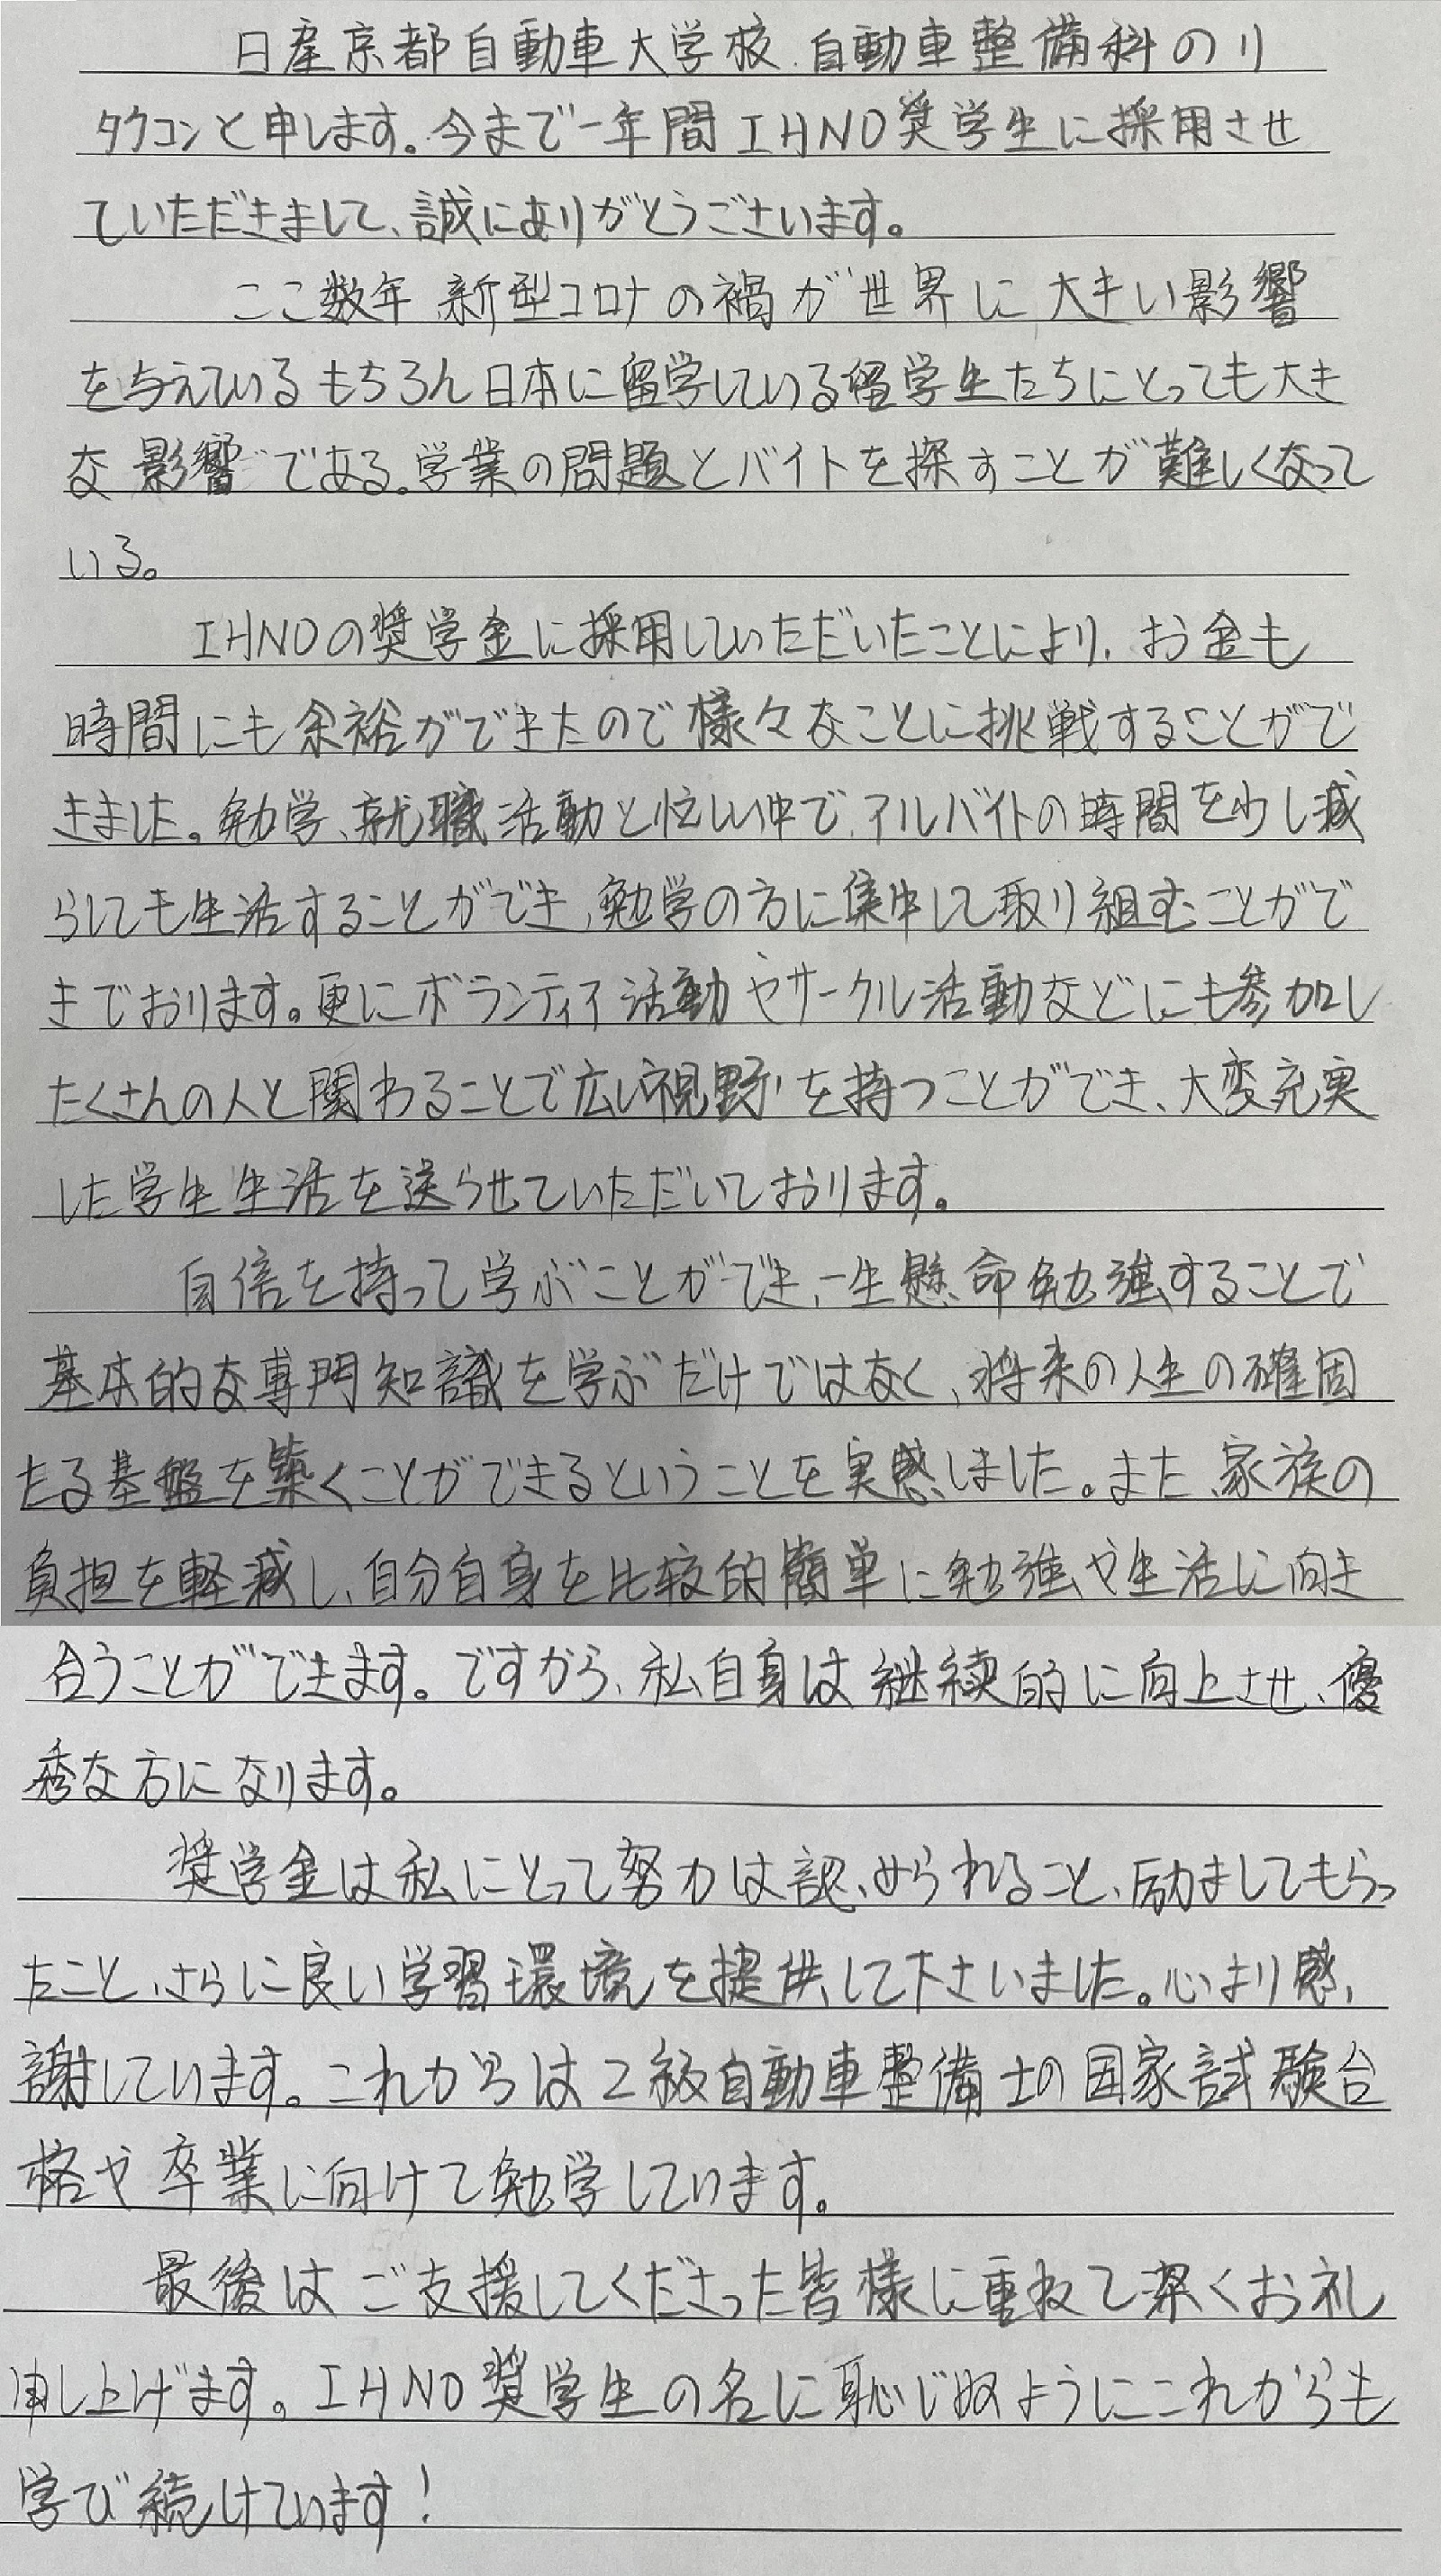 日産京都自動車大学校.自動車整備科のリ
タクコンと申します。今まで一年間IHNO奨学生に採用させ
ていただきまして、誠にありがとうごさいます。
ここ数年 新型コロナの禍が世界に大きい影響
を与えているもちろん日本に留学している留学生たちにとっても大き
な影響である。学業の問題とバイトを探すことが難しくなって
いる。
IHNOの奨学金に採用していただいたことにより、お金も
時間にも余裕ができたので様々なことに挑戦することがで
きました。勉学、就職活動と忙しい中で、アルバイトの時間を少し減
らしても生活することができ、勉学の方に集中して取り組むことがで
きでおります。更にボランティア活動やサークル活動などにも参加し
たくさんの人と関わることで広い視野を持つことができ、大変充実
した学生生活を送らせていただいております。
自信を持って学ぶことができ、一生懸命勉強することで
基本的な専門知識を学ぶだけではなく、将来の人生の確固
たる基盤を築くことができるということを実感しました。また、家族の
負担を軽減し、自分自身を比較的簡単に勉強や生活に向き
合うことができます。ですから、私自身は継続的に向上させ、優
秀な方になります。
奨学金は私にとって努力は認められること、励ましてもらっ
たこと、さらに良い学習環境を提供して下さいました。心より感
謝しています。これからは2級自動車整備士の国家試験合
格や卒業に向けて勉学しています。
最後はご支援してくださった皆様に重ねて深くお礼
申し上げます。IHNO奨学生の名に恥じぬようにこれからも
学び続けています!